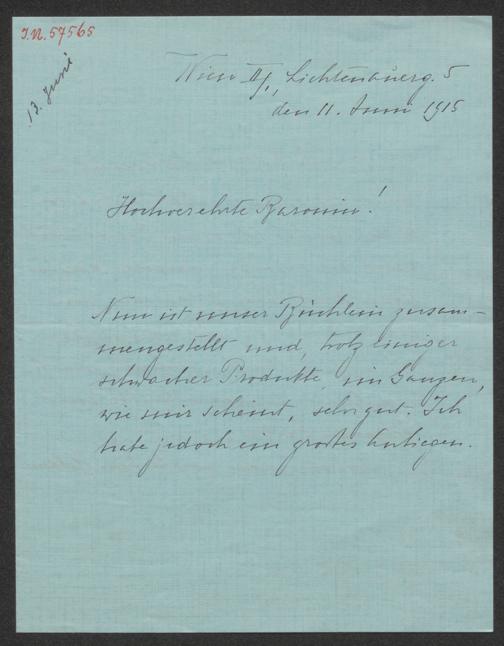 I.N. 57565
13. Juni
Wien II/1, Lichtenauerg. 5
den 11. Juni 1915
Hochverehrte Baronin!
Nun ist unser Büchlein zusam-
mengestellt und, trotz einiger
schwacher Produkte, im Ganzen,
wie mir scheint, sehr gut. Ich
habe jedoch ein großes Anliegen.